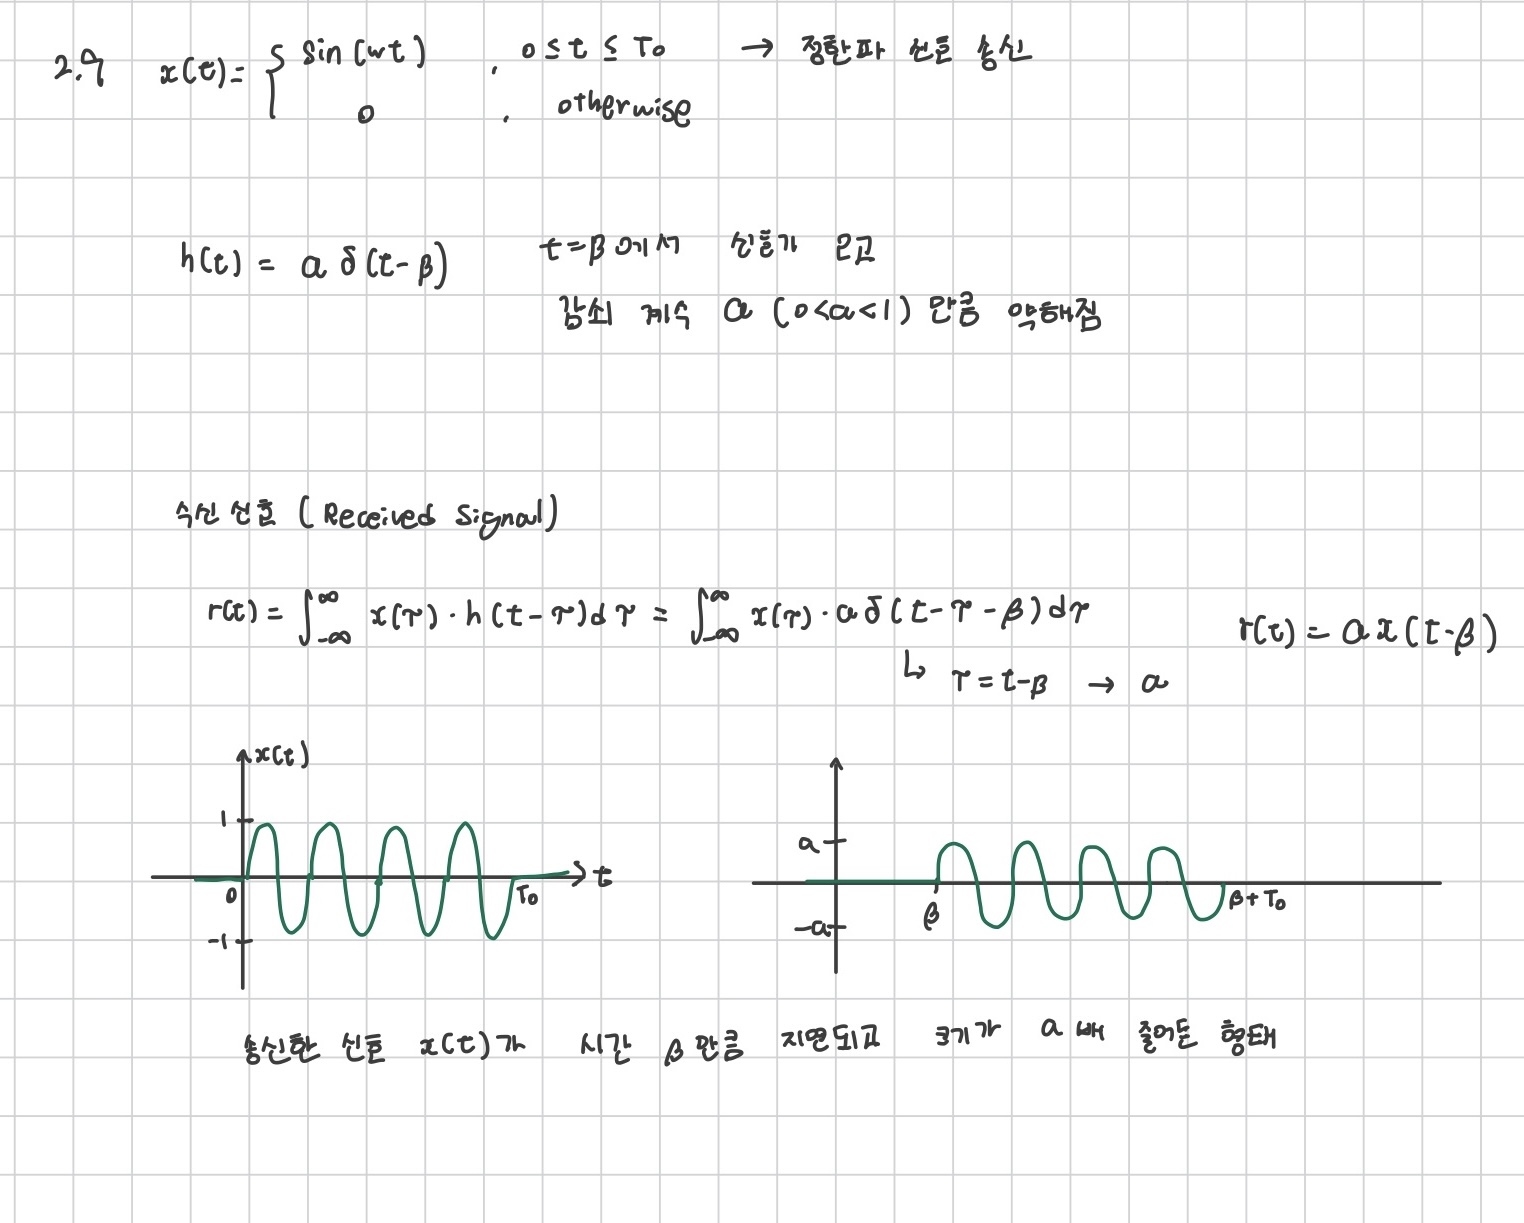 2.9 x(t)= { sin(wt) , 0 ≤ t ≤ T₀ → 정현파 신호 송신
0 , otherwise
h(t) = a δ(t-β) t=β에서 신호가 오고
감쇠 계수 a (0<a<1) 만큼 약해짐
수신 신호 (Received Signal)
r(t) = ∫_{-∞}^{∞} x(τ)·h(t-τ)dτ = ∫_{-∞}^{∞} x(τ)·a δ(t-τ-β)dτ r(t) = a x(t-β)
↳ τ=t-β → a
x(t)
1
0
T₀
t
-1
a
β
β+T₀
-a
송신한 신호 x(t)가 시간 β만큼 지연되고 크기가 a배 줄어든 형태